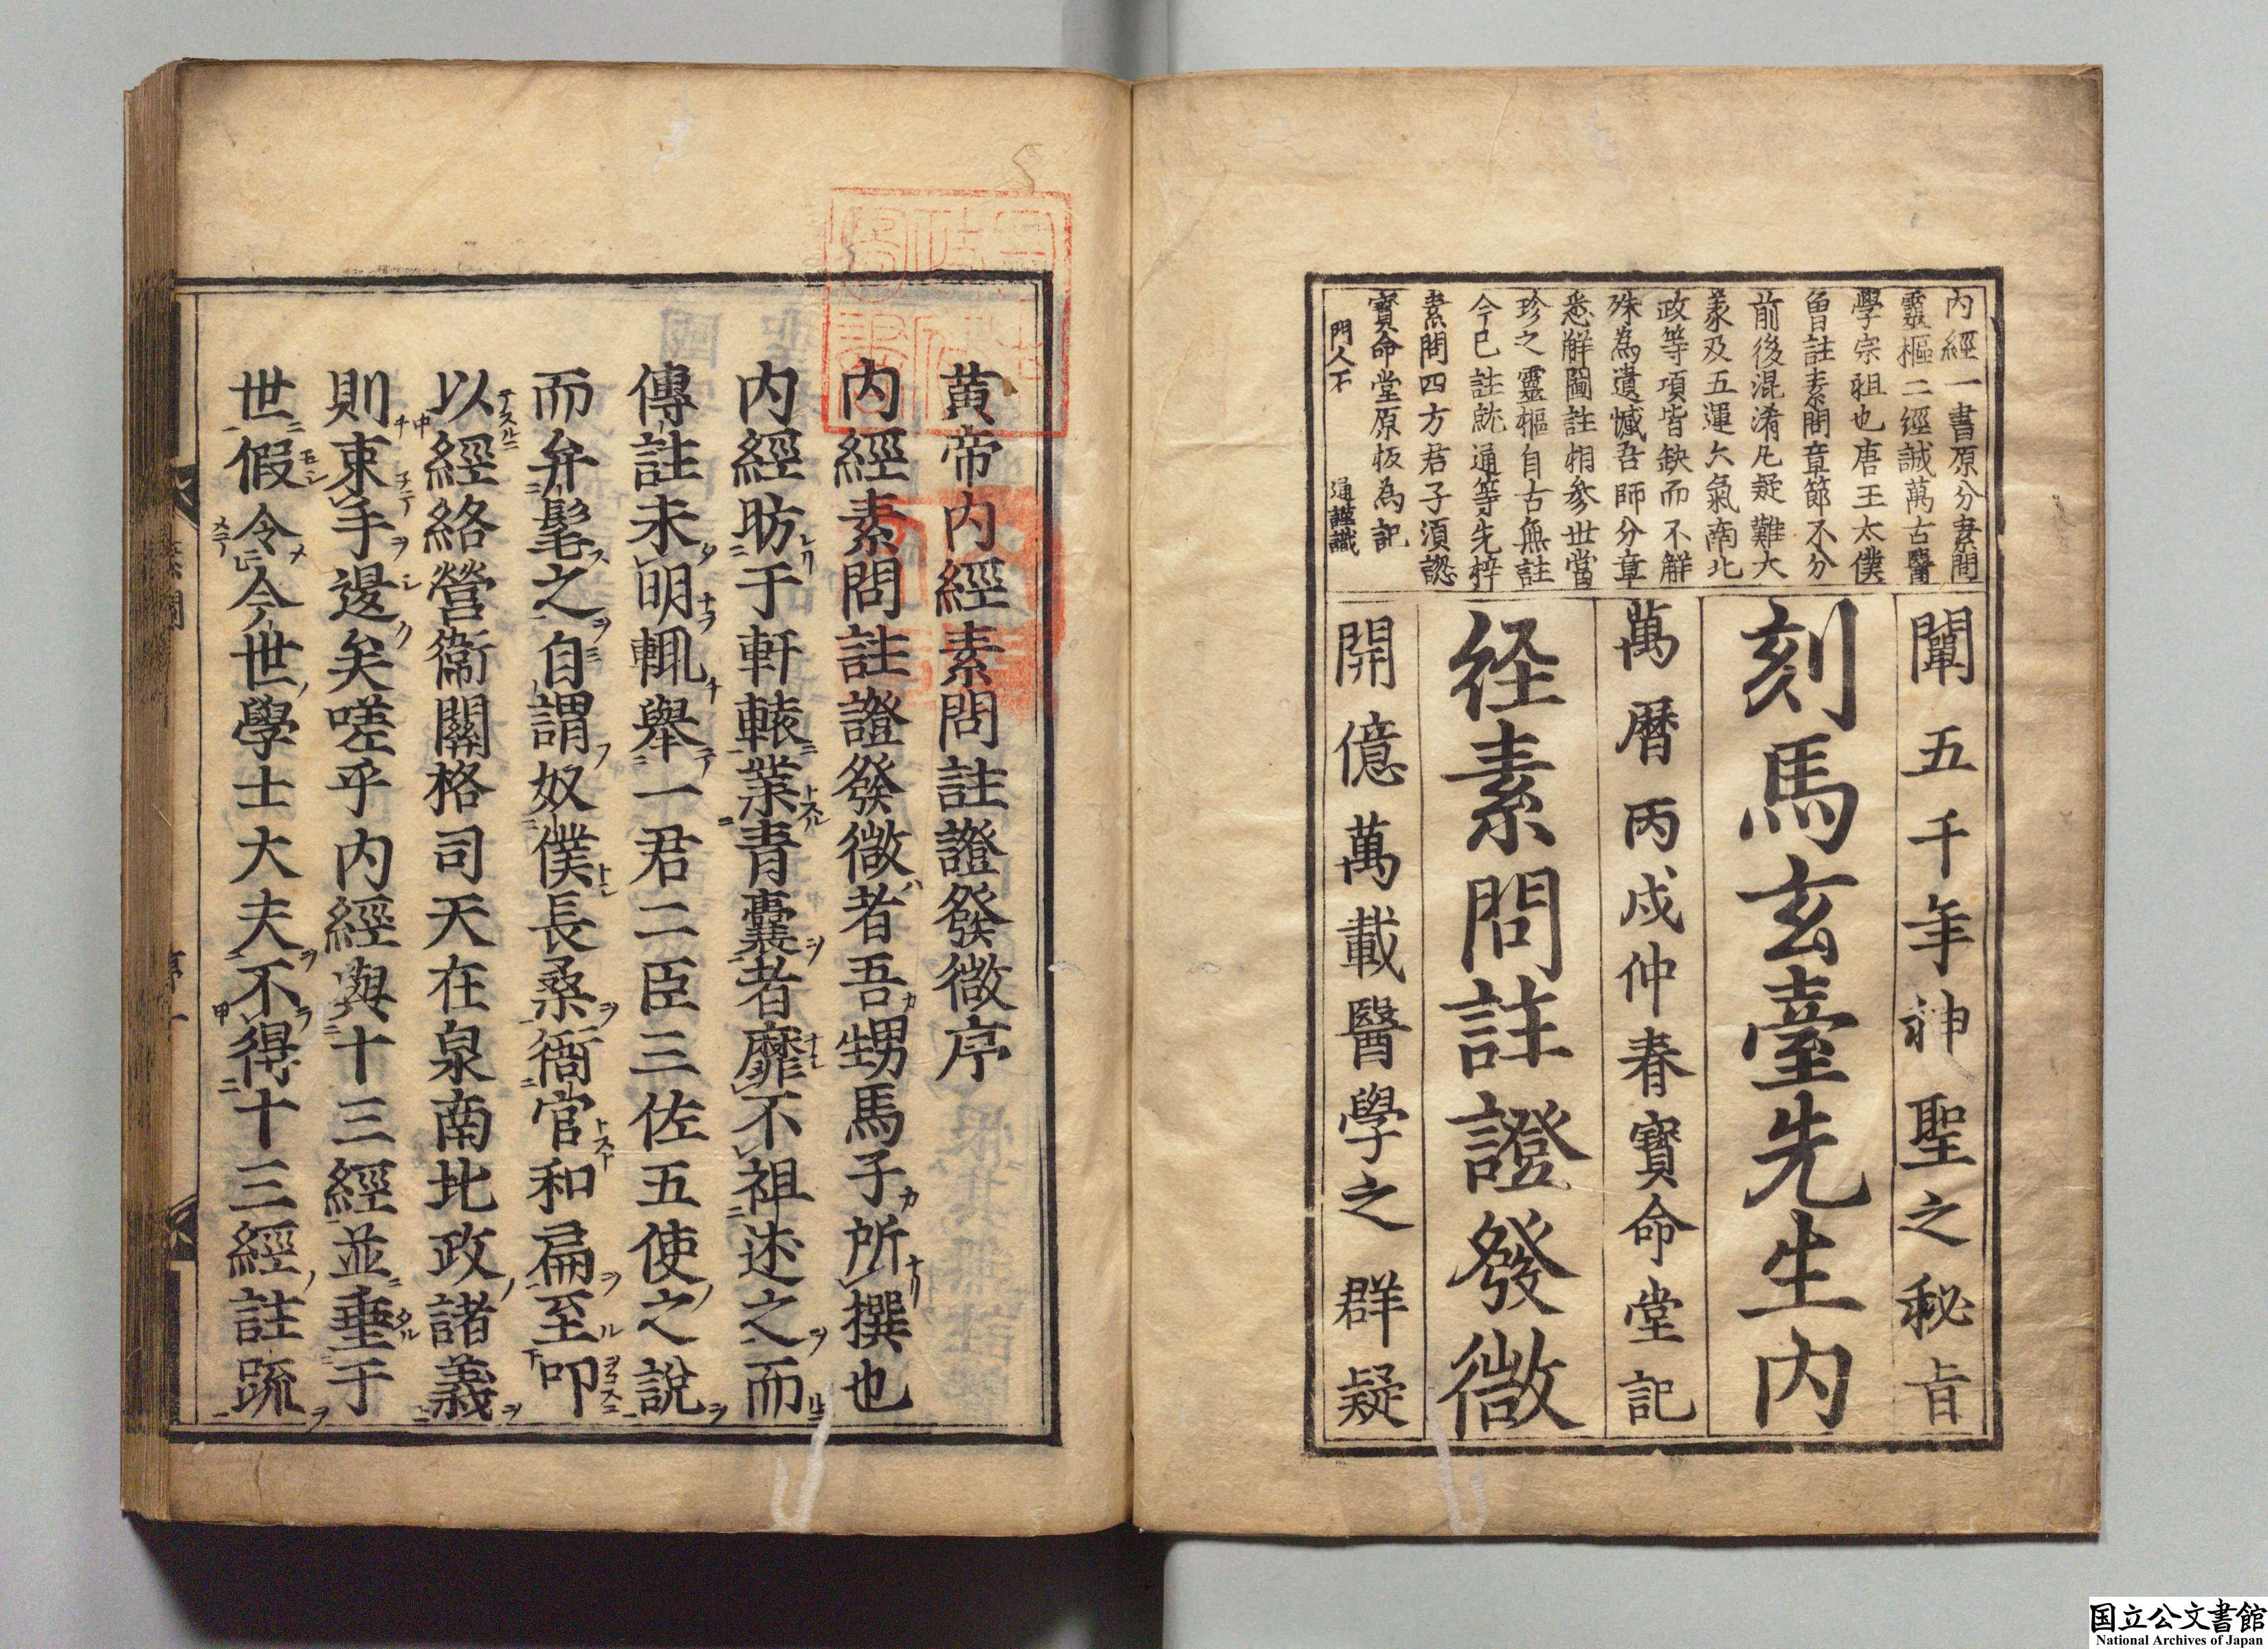 內經一書原分素問
靈樞二經誠萬古醫
學宗祖也唐王太僕
曾註素問章節不分
前後混淆凡疑難大
義及五運六氣南北
政等項皆缺而不解
殊為遺憾吾師分章
悉觧圖註相參世當
珍之靈樞自古無註
今已註就通等先梓
素問四方君子須認
寶命堂原板為記
門人不 通謹識
闡五千年神聖之秘旨
刻馬玄臺先生內
萬曆丙戌仲春寶命堂記
経素問註證發微
開億萬載醫學之群疑
黄帝內經素問註證發微序
內經素問註證發微者吾甥馬子所撰也
內經昉于軒轅業青囊者靡不祖述之而
傳註未明輒舉一君二臣三佐五使之說
而弁髦之自謂奴僕長桑衙官和扁至叩
以經絡營衞關格司天在泉南北政諸義
則束手𨗿矣嗟乎內經與十三經並垂于
世假令今世學士大夫不得十三經註䟽
国立公文書館
National Archives of Japan